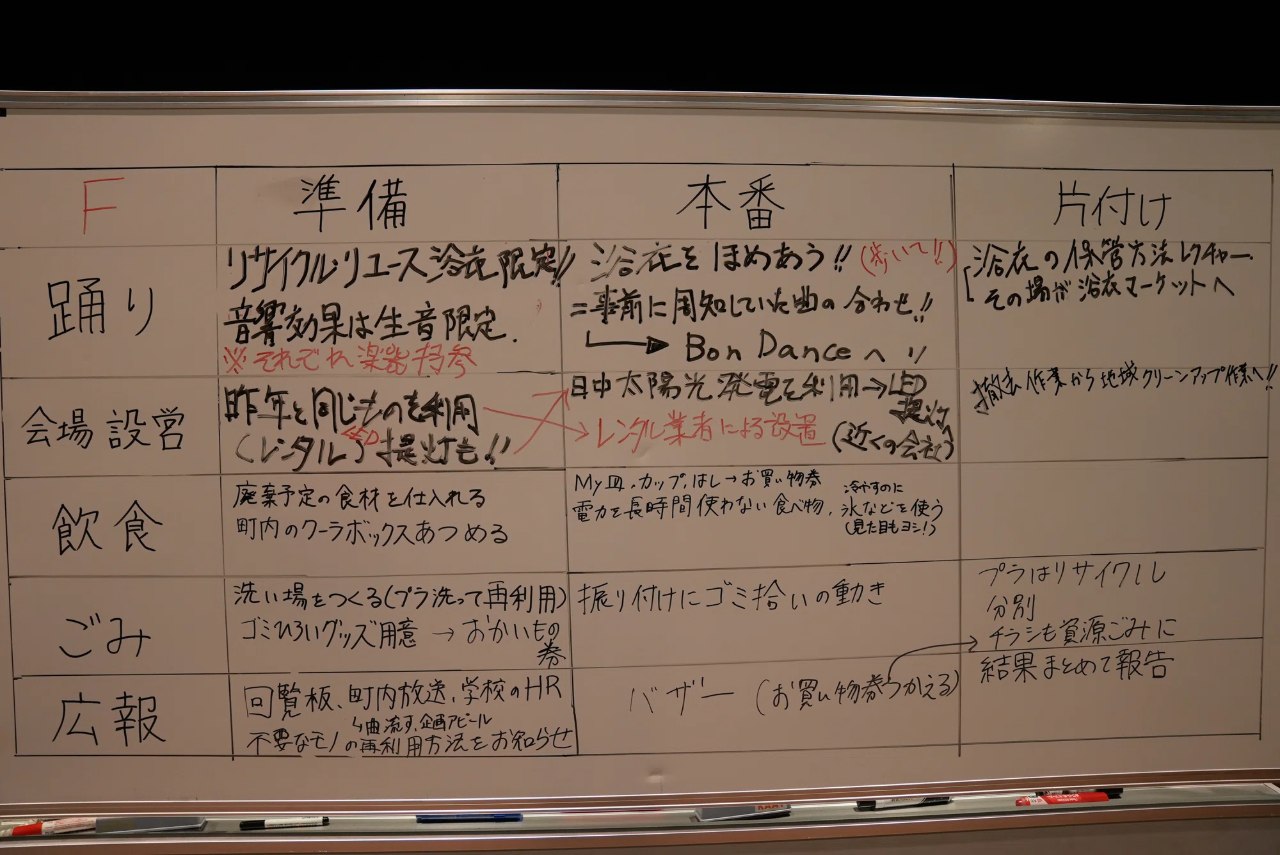 F
準備
本番
片付け
踊り
リサイクル・リユース浴衣限定!!
音響効果は生音限定.
※それぞれ楽器持参
浴衣をほめあう!! (歩いて!!)
=事前に周知していた曲の合わせ!!
→ Bon Danceへ!!
浴衣の保管方法レクチャー.
その場が浴衣マーケットへ
会場設営
昨年と同じものを利用
(レンタル) LED 提灯も!!
日中太陽光発電を利用→LED
提灯
レンタル業者による設置
(近くの会社)
撤去作業から地域クリーンアップ作業へ!!
飲食
廃棄予定の食材を仕入れる
町内のクーラボックスあつめる
My皿.カップ.はし→お買い物券
電力を長時間使わない食べ物.
冷やすのに
氷などを使う
(見た目もヨシ!)
ごみ
洗い場をつくる(プラ洗って再利用)
ゴミひろいグッズ用意 → おかいもの
券
振り付けにゴミ拾いの動き
プラはリサイクル
分別
チラシも資源ごみに
広報
回覧板、町内放送、学校のHR
↳曲流す、企画アピール
不要なモノの再利用方法をお知らせ
バザー (お買い物券つかえる)
結果まとめて報告